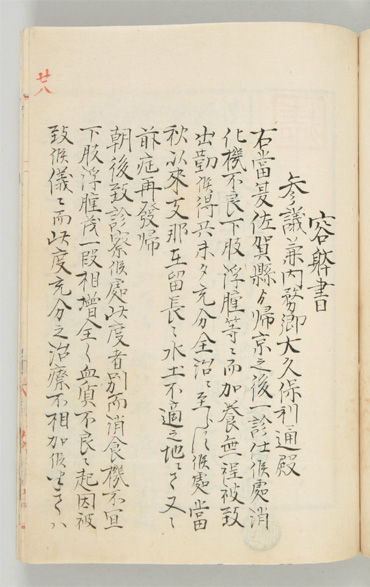 廿八
容躰書
参議兼内務卿大久保利通殿
右當夏佐賀縣ゟ帰京之後一診仕候處消
化機不良下肢浮腫等ニ而加養無程被致
出勤候得共未タ充分全治ニ至ラス候處當
秋以來支那在留長々水土不適之地ニテ又々
前症再發帰
朝後致診察候處此度者別而消食機不宜
下肢浮腫茂一段相増全ク血質不良ニ起因被
致候儀ニ而此度充分之治療不相加候